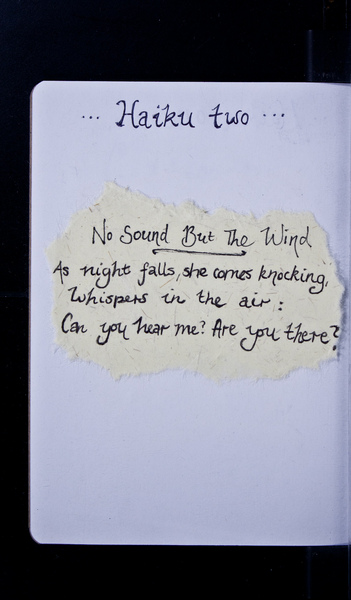 ... Haiku two ...
No Sound But The Wind
As night falls, she comes knocking,
Whispers in the air :
Can you hear me? Are you there?